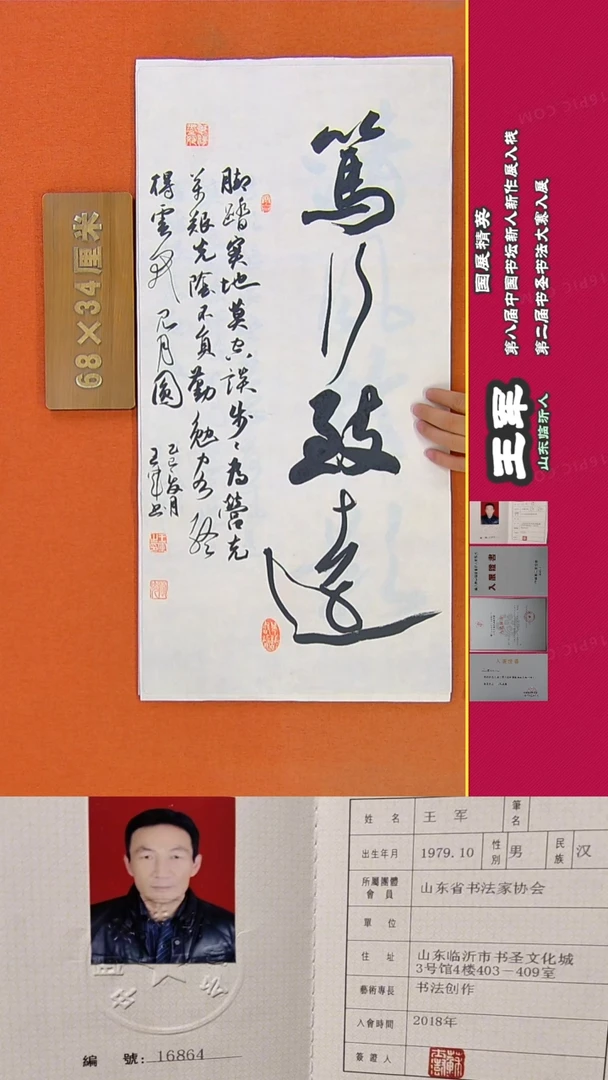 篤行致遠
脚踏实地莫空误步步为营克
万艰光阴不负勤勉客终
得雲开见月圆
王军书
68×34厘米
国展精英
第八届中国书坛新人新作展入展
第二届书圣书法大赛入展
王军
山东临沂人
入展证书
姓名 王军 筆名
出生年月 1979.10 性別 男 民族 汉
所屬團體會員 山东省书法家协会
單位
住址 山东临沂市书圣文化城
3号馆4楼403-409室
藝術專長 书法创作
入會時間 2018年
簽證人
編號: 16864